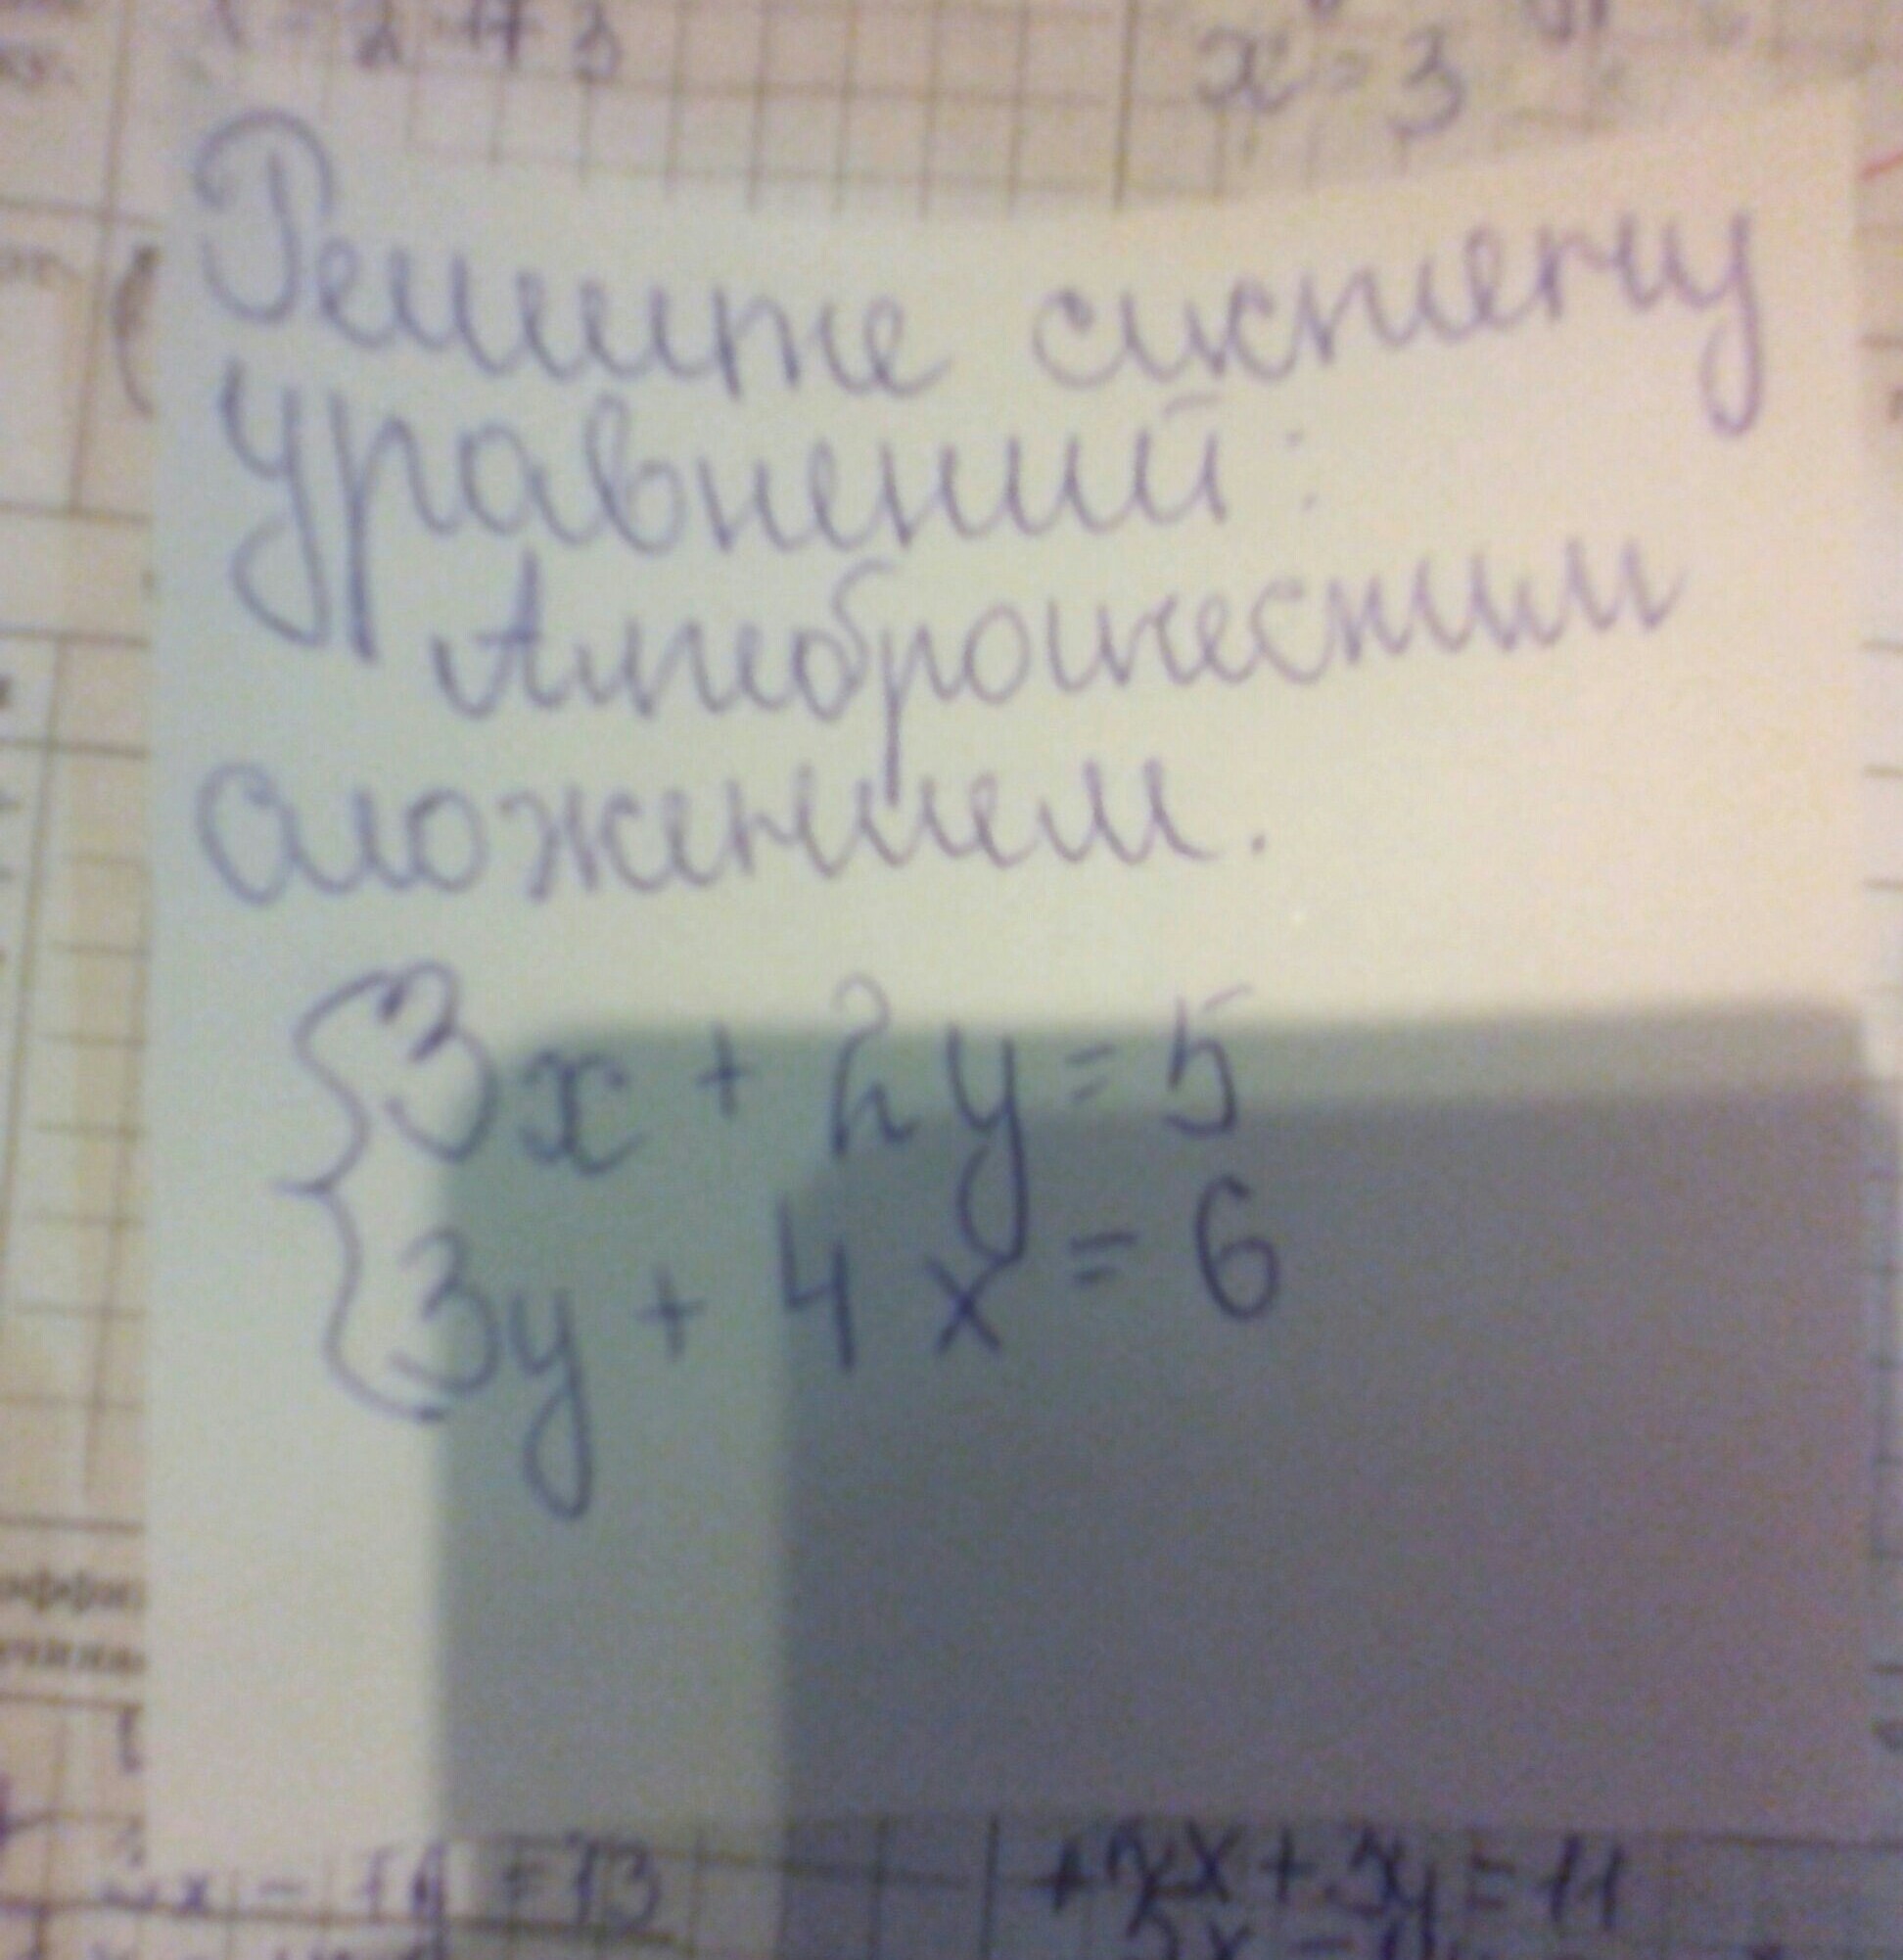 x = 3
Решите систему
уравнений:
Алгебраическим
сложением.
3x + 2y = 5
3y + 4x = 6